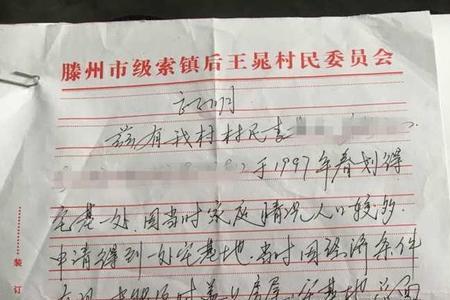 滕州市级索镇后王晁村民委员会
证明
兹有我村村民袁
于1997年春划得
宅基一处,因当时家庭情况人口较多,
申请得到一处宅基地,当时因经济条件
房屋
装订